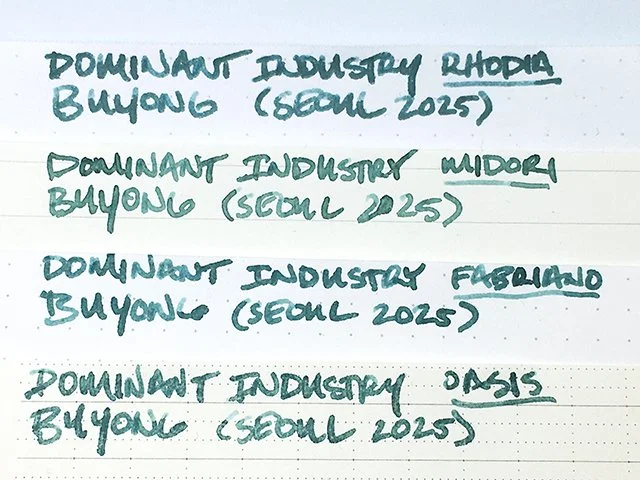 DOMINANT INDUSTRY RHODIA
BUYONG (SEOUL 2025)
DOMINANT INDUSTRY MIDORI
BUYONG (SEOUL 2025)
DOMINANT INDUSTRY FABRIANO
BUYONG (SEOUL 2025)
DOMINANT INDUSTRY OASIS
BUYONG (SEOUL 2025)